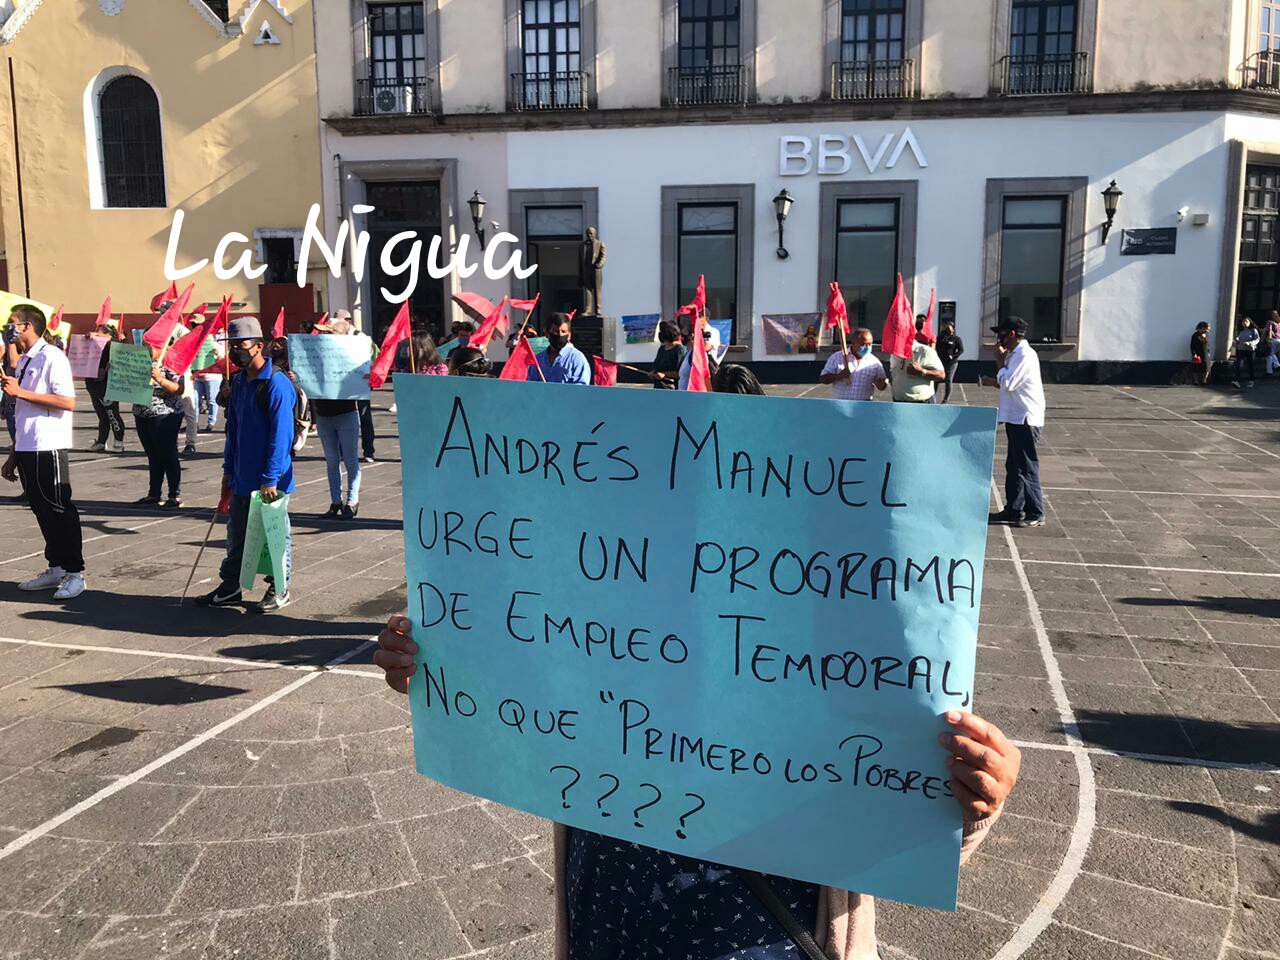 BBVA
La Nigua
ANDRÉS MANUEL
URGE UN PROGRAMA
DE EMPLEO TEMPORAL,
NO QUE "PRIMERO LOS POBRES
????